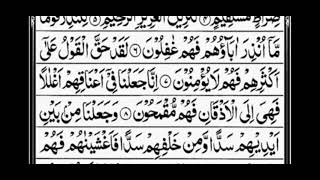 صِرَاطٍ مُّسْتَقِيْمٍ ۴ تَنْزِيْلَ الْعَزِيْزِ الرَّحِيْمِ ۵ لِتُنْذِرَ قَوْمًا
مَّاۤ اُنْذِرَ اٰبَآؤُهُمْ فَهُمْ غٰفِلُوْنَ ۶ لَقَدْ حَقَّ الْقَوْلُ عَلٰۤى
اَكْثَرِهِمْ فَهُمْ لَا يُؤْمِنُوْنَ ۷ اِنَّا جَعَلْنَا فِيْۤ اَعْنَاقِهِمْ اَغْلٰلًا
فَهِيَ اِلَى الْاَذْقَانِ فَهُمْ مُّقْمَحُوْنَ ۸ وَجَعَلْنَا مِنْۢ بَيْنِ
اَيْدِيْهِمْ سَدًّا وَّمِنْ خَلْفِهِمْ سَدًّا فَاَغْشَيْنٰهُمْ فَهُمْ